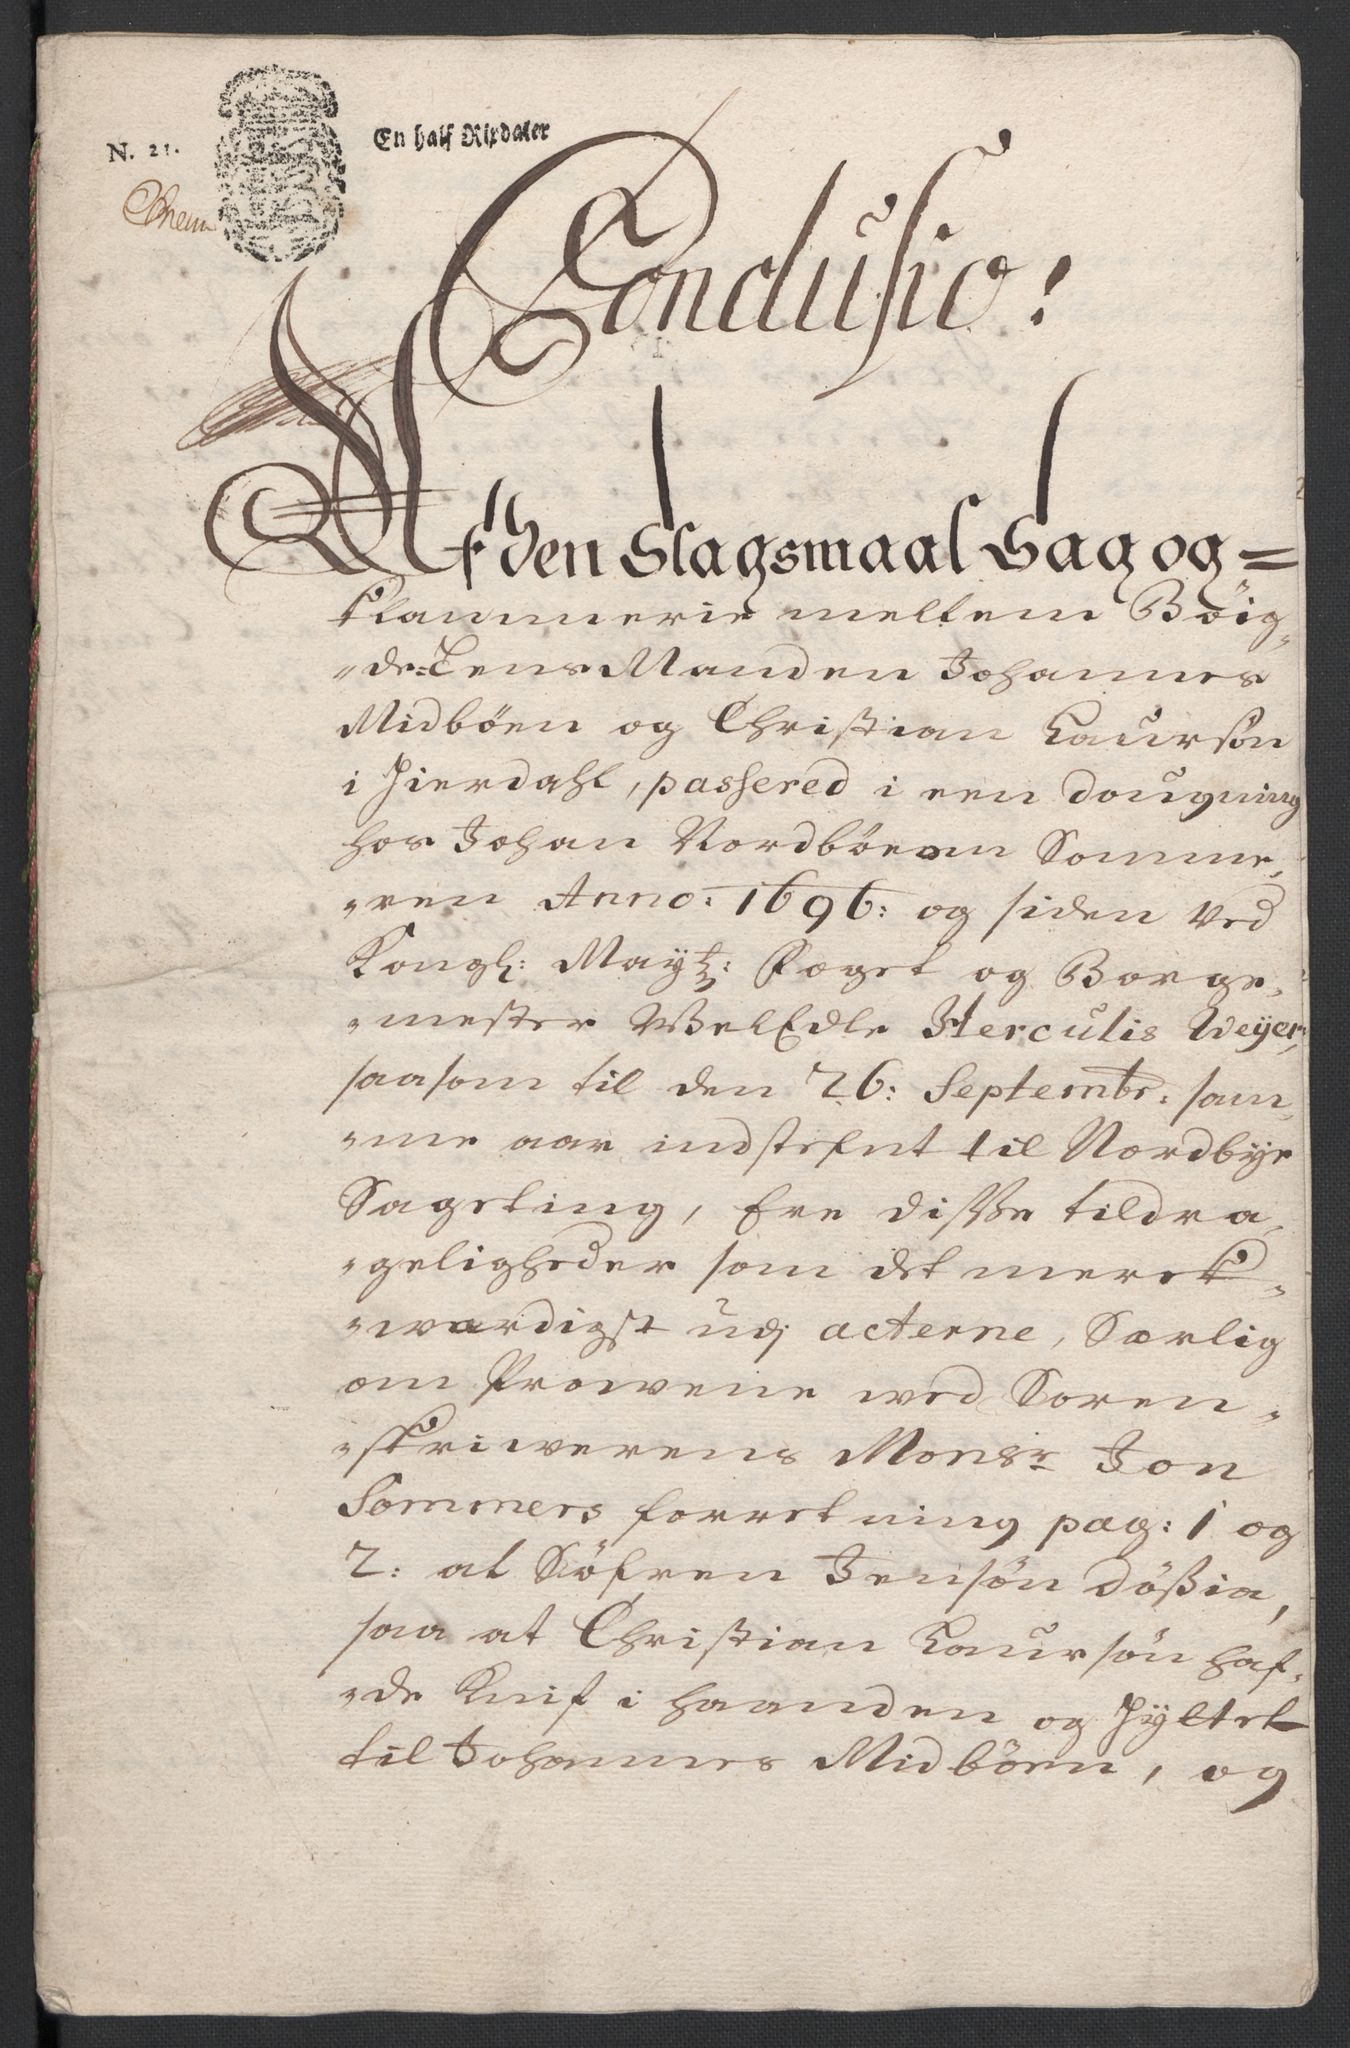 N. 21.
En half Rixdaler
Conclusio!
Af den Slagsmaal Sag og=
Klammerie mellem Böig-
-de-Lens Manden Johannes
Midböen og Christian Laursön
i Hierdahl, passered i een dougning
hos Johan Nordböeen Somme-
-ren Anno: 1696: og siden Ved
Kongl: Maytz: Foget og Borge-
-mester WelEdle Herculis Weyer,
saasom til den 26: Septembr: sam-
-me aar indstefnt til Nordbÿe
Sageting, Ere disse tildra-
-geligheder som det merck-
-wærdigst udj acterne, Særlig
om Prowene wed Soren-
-skriwerens Monsr Jon
Sommers forretning pag: 1 og
2: at Söfren Jensön Dößia,
saa at Christian Laursön haf-
-de Knif i haanden og Hÿttet
til Johannes Midböen, og